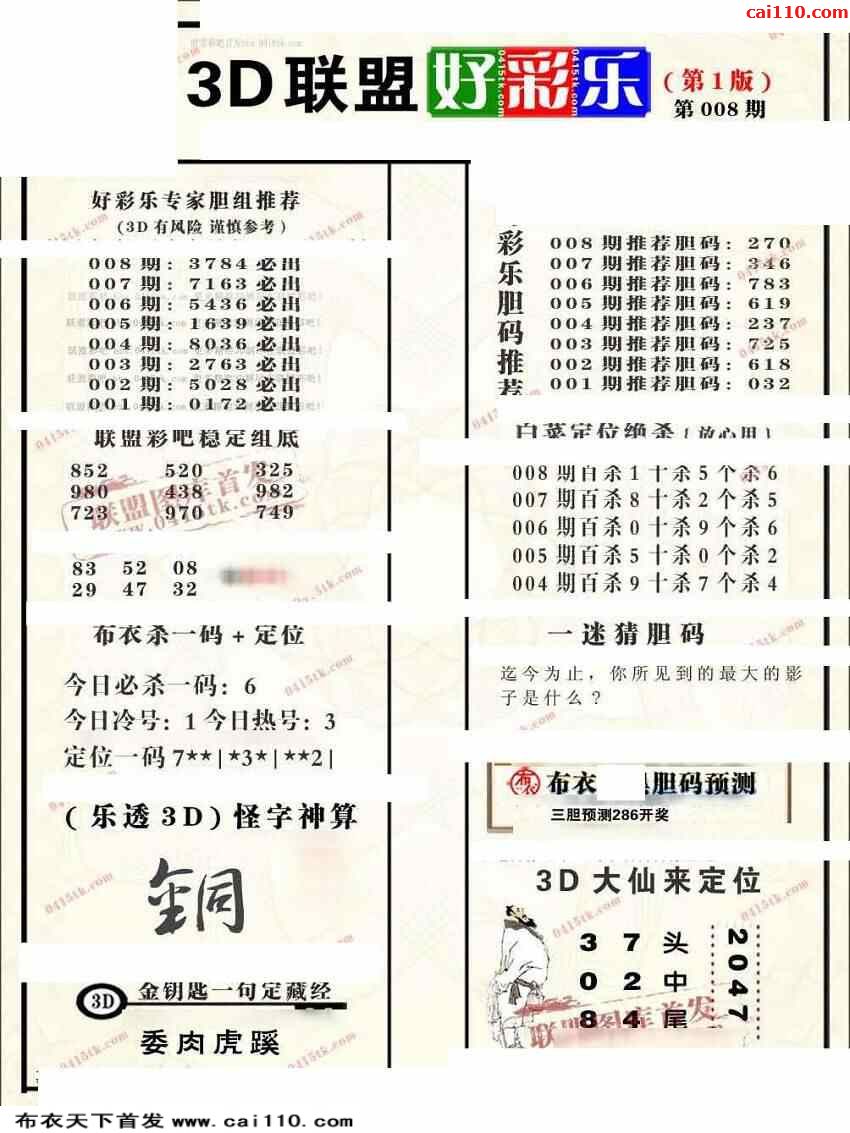 cai110.com
3D联盟好彩乐
(第1版)
第008期
好彩乐专家胆组推荐
(3D有风险 谨慎参考)
008期:3784必出
007期:7163必出
006期:5436必出
005期:1639必出
004期:8036必出
003期:2763必出
002期:5028必出
001期:0172必出
联盟彩吧稳定组底
852 520 325
980 438 982
723 970 749
83 52 08
29 47 32
布衣杀一码+定位
今日必杀一码:6
今日冷号:1今日热号:3
定位一码7**|*3*|**2|
(乐透3D)怪字神算
銅
3D 金钥匙一句定藏经
委肉虎蹊
彩乐胆码推荐
008期推荐胆码:270
007期推荐胆码:346
006期推荐胆码:783
005期推荐胆码:619
004期推荐胆码:237
003期推荐胆码:725
002期推荐胆码:618
001期推荐胆码:032
白菜定位绝杀(放心用)
008期百杀1十杀5个杀6
007期百杀8十杀2个杀5
006期百杀0十杀9个杀6
005期百杀5十杀0个杀2
004期百杀9十杀7个杀4
一迷猜胆码
迄今为止,你所见到的最大的影
子是什么?
布衣 胆码预测
三胆预测286开奖
3D大仙来定位
3 7 头
0 2 中
8 4 尾
2047
联盟图库首发
www.0415tk.com
0415tk.com
布衣天下首发 www.cai110.com